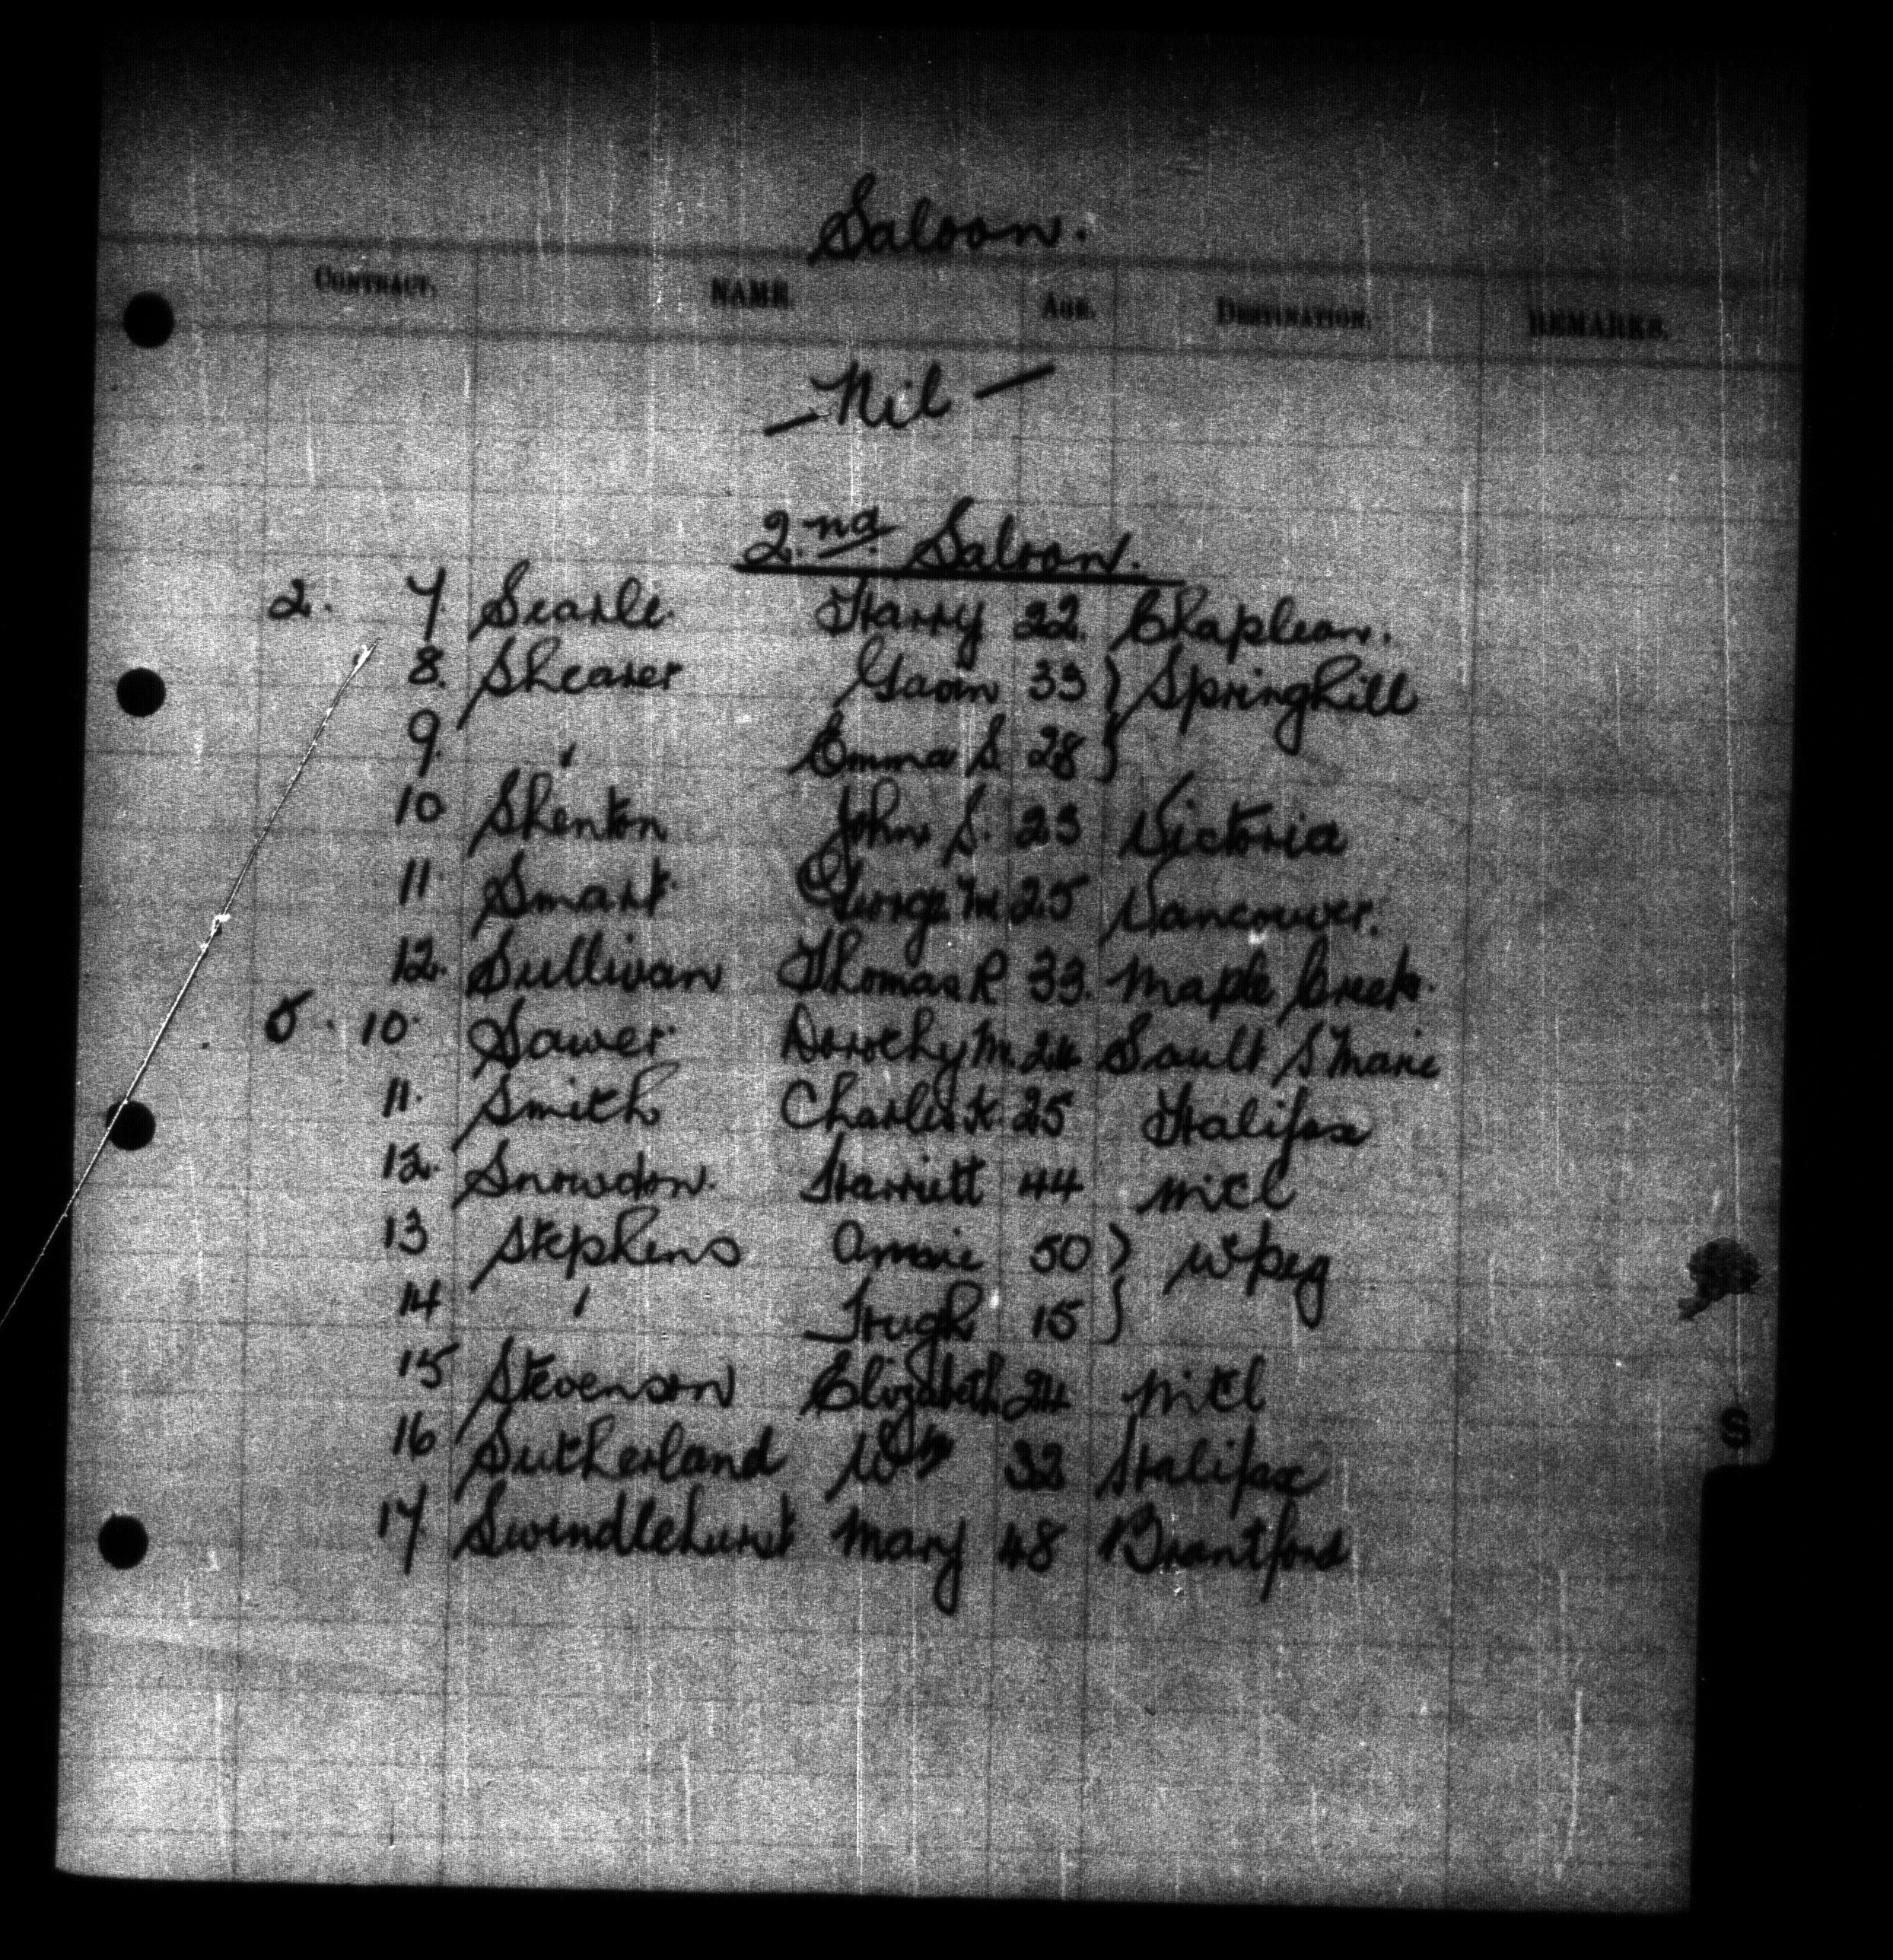 Saloon.
CONTRACT. NAME. AGE. DESTINATION. REMARKS.
— Nil —
2.nd Saloon.
2. 7. Searle. Harry 22. Chapleau.
8. Shearer Gavin 33 } Springhill
9. " Emma S. 28 }
10 Shenton John S. 23 Victoria
11. Smart. George M 25 Vancouver.
12. Sullivan Thomas R 33. Maple Creek.
5. 10. Sawer. Dorothy M. 24 Sault S Marie
11. Smith Charles 25 Halifax
12. Snowdon. Harriett 44 Mtl
13 Stephens Annie 50 } W'peg
14 " Hugh 15 }
15 Stevenson Elizabeth 24 Mtl
16 Sutherland Wm 32 Halifax
S
17 Swindlehurst Mary 48 Brantford